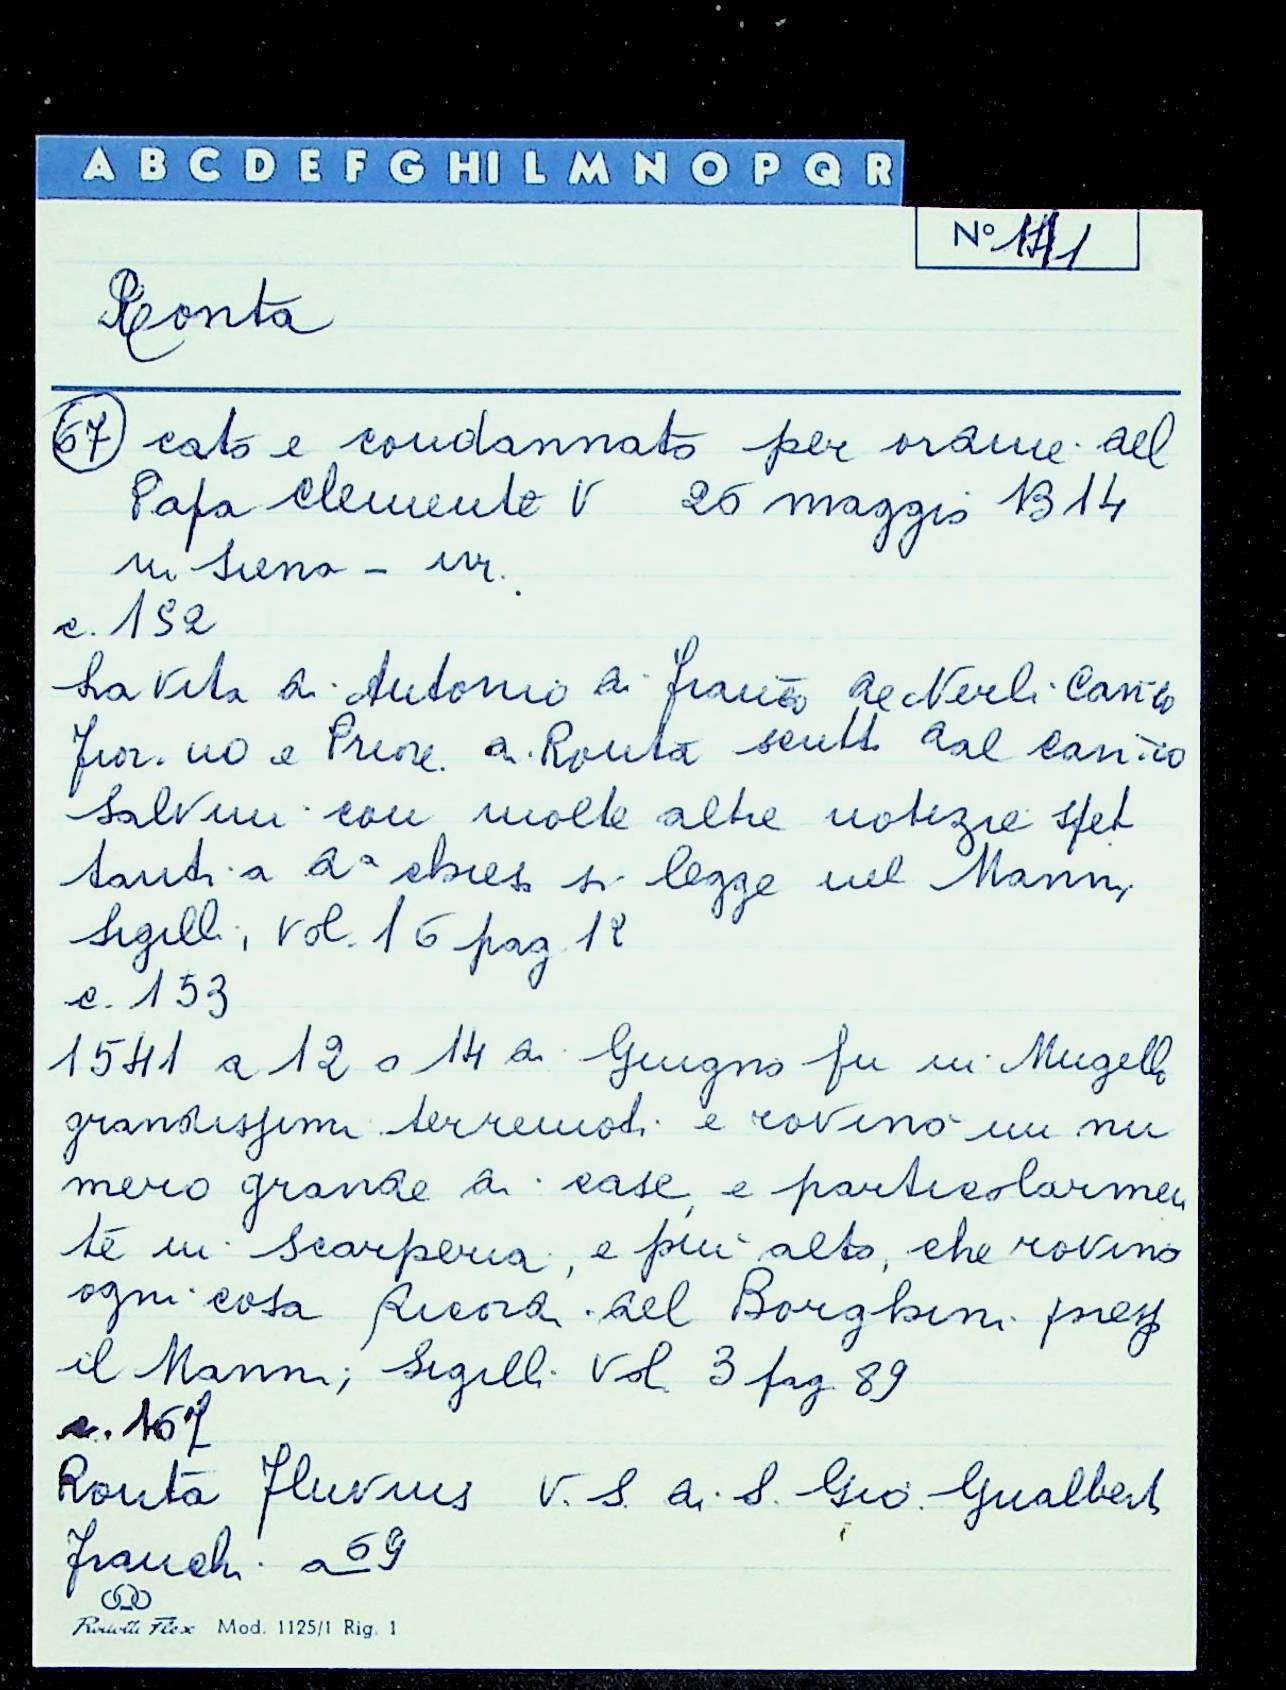 A B C D E F G HI L M N O P Q R
N°
Ronta
67 cato e condannato per ordine del
Papa Clemente V 26 maggio 1314
in Siena - ivi.
c. 152
La vita di Antonio di Franco de Nerli Can.co
Fior.no e Priore di Ronta scritta dal can.co
Salvini con molte altre notizie spet
tanti a da chiesa si legge nel Manni,
Sigilli, vol. 16 pag 12
c. 153
1541 a 12 o 14 di Giugno fu in Mugello
grandissimi terremoti e rovinò un nu
mero grande di case, e particolarmen
te in Scarperia, e più alto, che rovinò
ogni cosa Ricordi del Borghini presso
il Manni, Sigilli Vol. 3 pag. 89
c. 167
Ronta Fluvius V. S. di S. Gio. Gualberto
Franchi a 69
Mod. 1125/1 Rig. 1